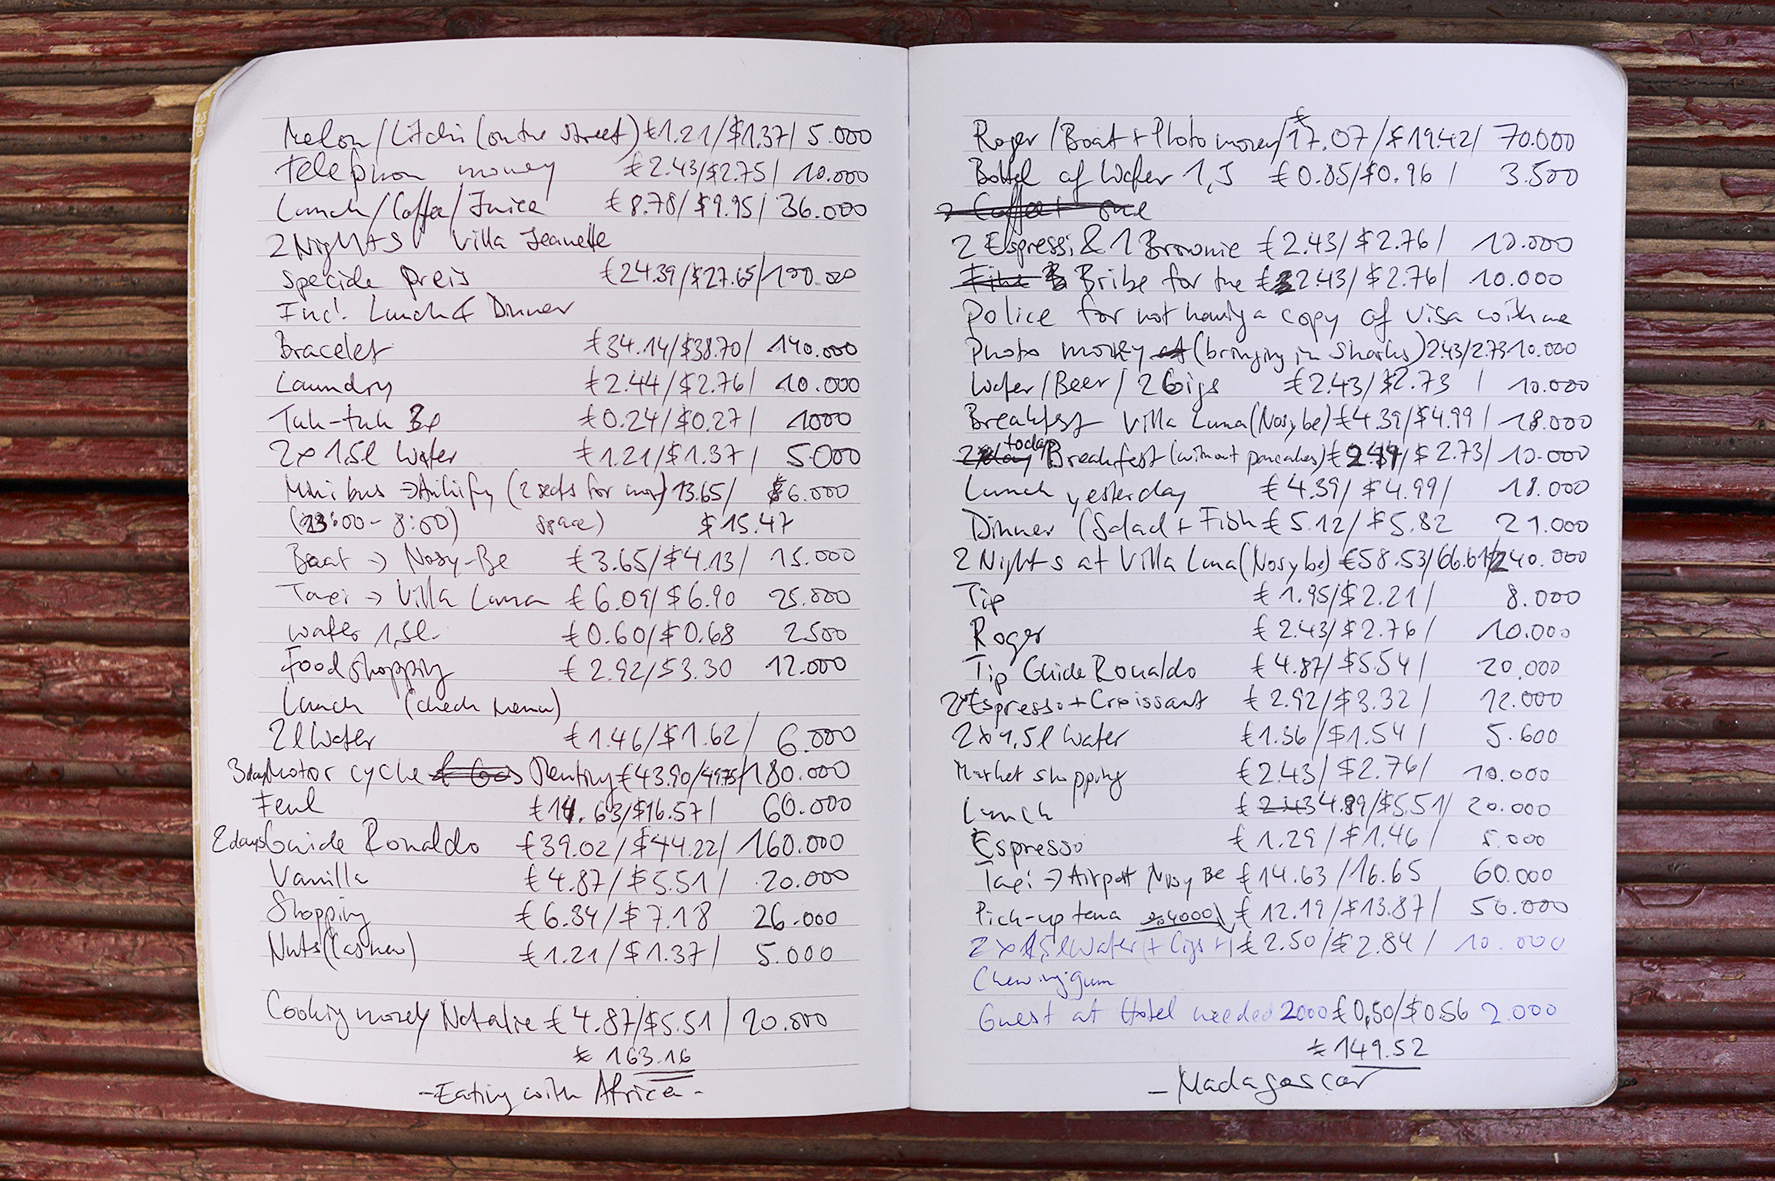 Melon/Litchi (on the street) €1.21/$1.37/ 5.000
Telephon money €2.43/$2.75/ 10.000
Lunch/Coffee/Juice €8.78/$9.95/ 36.000
2 Nights Villa Jeanette
Speciale Preis €24.39/$27.65/ 100.000
Incl. Lunch & Dinner
Bracelet €34.14/$38.70/ 140.000
Laundry €2.44/$2.76/ 10.000
Tuk-tuk €0.24/$0.27/ 1000
2x 1,5l Water €1.21/$1.37/ 5.000
Mini bus → Ankify (2 seats for more 13.65/ 56.000
(23:00-8:00) space) $15.47
Boat → Nosy-Be €3.65/$4.13/ 15.000
Taxi → Villa Luna €6.09/$6.90 25.000
Water 1,5l €0.60/$0.68 2500
Food shopping €2.92/$3.30 12.000
Lunch (check Menu)
2l Water €1.46/$1.62/ 6.000
3days Motor cycle & Gas Renting €43.90/49.75/ 180.000
Feul €14.63/$16.57/ 60.000
2days Guide Ronaldo €39.02/$44.22/ 160.000
Vanilla €4.87/$5.51/ 20.000
Shopping €6.34/$7.18 26.000
Nuts (Cashew) €1.21/$1.37/ 5.000
Cooking money Natalie €4.87/$5.51/ 20.000
€ 163.16
-Eating with Africa-
Roger/Boat + Photo money/€17.07/$19.42/ 70.000
Bottel of Water 1,5 €0.85/$0.96/ 3.500
2 Coffee + one
2 Espressi & 1 Brownie €2.43/$2.76/ 10.000
Fine Bribe for the €2.43/$2.76/ 10.000
Police for not having a copy of visa with me
Photo money (bringing in Sharks) 2.43/2.73 10.000
Water/Beer/2 Cigs €2.43/$2.73 / 10.000
Breakfest Villa Luna (Nosy be) €4.39/$4.99/ 18.000
today Breakfest (without pancakes) €2.44/$2.73/ 10.000
Lunch yesterday €4.39/$4.99/ 18.000
Dinner (Salad + Fish €5.12/$5.82 21.000
2 Nights at Villa Luna (Nosy be) €58.53/66.61/ 240.000
Tip €1.95/$2.21/ 8.000
Roger €2.43/$2.76/ 10.000
Tip Guide Ronaldo €4.87/$5.54/ 20.000
2x Espresso + Croissant €2.92/$3.32/ 12.000
2x 1,5l Water €1.36/$1.54/ 5.600
Market shopping €2.43/$2.76/ 10.000
Lunch € 2.43 4.89/$5.51/ 20.000
Espresso €1.29/$1.46/ 5.000
Taxi → Airport Nosy Be €14.63/16.65 60.000
Pick-up tana €12.19/$13.87/ 50.000
2x 1,5l Water (+ Cigs + €2.50/$2.84/ 10.000
Chewing gum
Guest at Hotel needed 2000 €0,50/$0.56 2.000
€149.52
-Madagascar